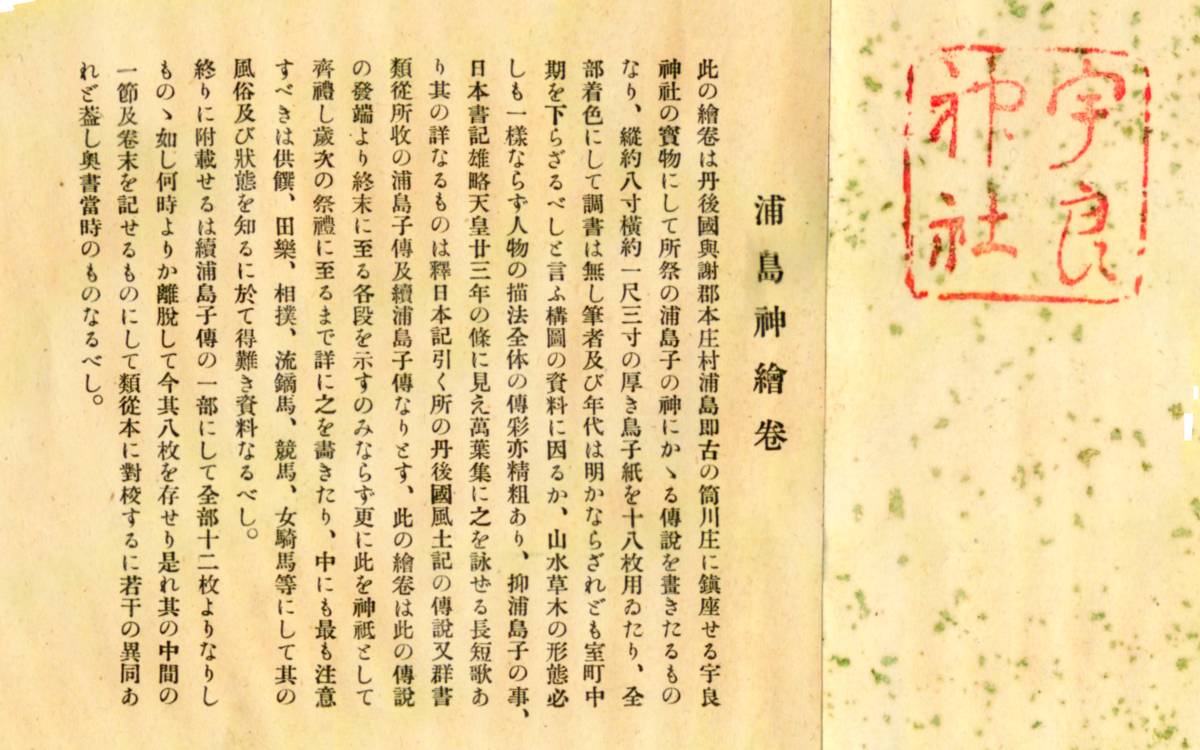 宇良
神社
浦島神繪卷
此の繪卷は丹後國與謝郡本庄村浦島即古の筒川庄に鎭座せる宇良
神社の寳物にして所祭の浦島子の神にかゝる傳說を畫きたるもの
なり、縱約八寸橫約一尺三寸の厚き鳥子紙を十八枚用ゐたり、全
部着色にして調書は無し筆者及び年代は明かならざれども室町中
期を下らざるべしと言ふ構圖の資料に因るか、山水草木の形態必
しも一樣ならず人物の描法全体の傳彩亦精粗あり、抑浦島子の事、
日本書記雄略天皇廿三年の條に見え萬葉集に之を詠せる長短歌あ
り其の詳なるものは釋日本記引く所の丹後國風土記の傳說又群書
類從所收の浦島子傳及續浦島子傳なりとす、此の繪卷は此の傳說
の發端より終末に至る各段を示すのみならず更に此を神祇として
齊禮し歲次の祭禮に至るまで詳に之を畵きたり、中にも最も注意
すべきは供饌、田樂、相撲、流鏑馬、競馬、女騎馬等にして其の
風俗及び狀態を知るに於て得難き資料なるべし。
終りに附載せるは續浦島子傳の一部にして全部十二枚よりなりし
ものゝ如し何時よりか離脫して今其八枚を存せり是れ其の中間の
一節及卷末を記せるものにして類從本に對校するに若干の異同あ
れど葢し奧書當時のものなるべし。